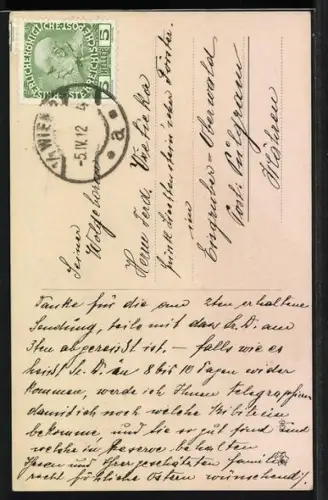 KAISERLICHE KÖNIGLICHE ÖSTERREICHISCHE POST
5 HELLER 5
WIEN
-5.IV.12
* a *
Seiner
Wolgeboren
Herrn Ferd.
fürstl. Liechtenstein'scher Förster
in
Eingruber-Oberwald
Post:
Mähren
Danke für die am 2ten erhaltene
Sendung, teils mit das Sr. D. am
3ten angereist ist. — falls wie es
heisst Sr. D. in 8 bis 10 Tagen wider
kommen, werde ich Ihnen telegraphieren
damit ich noch welche
bekomme, und Sie so gut sind und
welche in Reserve behalten
Ihnen und Ihrer geschätzten Familie
recht fröhliche Ostern wünschend!